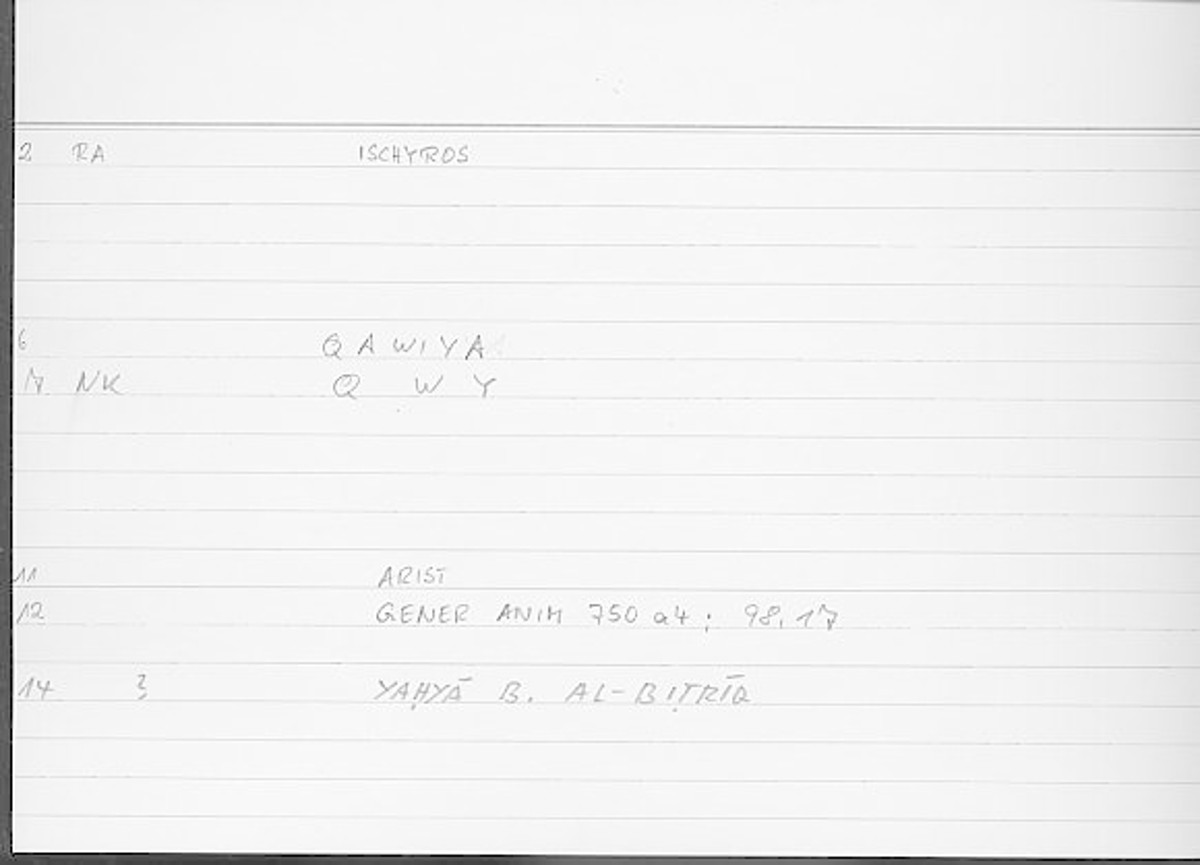 2 RA ISCHYROS
6 QAWIYA
7 NK Q W Y
11 ARIST
12 GENER ANIM 750 a4; 98,17
14 ? YAḤYĀ B. AL-BIṬRĪQ